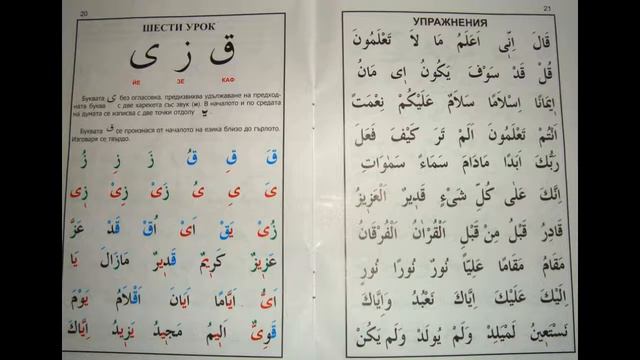 20
ШЕСТИ УРОК
ق ز ى
ЙЕ ЗЕ КАФ
Буквата ى без огласовка, предизвиква удължаване на предход-
ната буква с две харекета със звук (и). В началото и по средата
на думата се изписва с две точки отдолу
Буквата ق се произнася от началото на езика близо до гърлото.
Изговаря се твърдо.
قَ قِ قُ زَ زِ زُ
ىَ ىِ ىُ زَىْ زِىْ زِى
زُىْ يَقْ اَىْ اُقْ قَدْ عَزَّ
عَزِيزٌ كَرِيمٌ قَدِيرٌ مَازَالَ يَا
اَىُّ اَيَّامًا اَيَانَ اَقْلَامُ يَوْمَ
قَوِىٌّ اَلِيمٌ مَجِيدٌ يَزِيدُ اِيَّاكَ
21
УПРАЖНЕНИЯ
قَالَ اِنِّى اَعْلَمُ مَا لَا تَعْلَمُونَ
قُلْ قَدْ سَوْفَ يَكُونُ اِى مَانُ
اِيمَانًا اِسْلَامًا سَلَامٌ عَلَيْكُمْ نِعْمَتَ
اَنْتُمْ تَعْلَمُونَ اَلَمْ تَرَ كَيْفَ فَعَلَ
رَبُّكَ اَبَدًا مَادَامَ سَمَاءً سَمٰوَاتِ
اِنَّكَ عَلٰى كُلِّ شَىْءٍ قَدِيرٌ اَلْعَزِيزُ
قَادِرُ قَبْلُ مِنْ قَبْلِ اَلْقُرْاٰنُ اَلْفُرْقَانُ
مَقَامُ مَقَامًا عَلِيًّا نُورٌ نُورًا نُورٍ
اِلَيْكَ عَلَيْكَ اِيَّاكَ نَعْبُدُ وَاِيَّاكَ
نَسْتَعِينُ لَمْيَلِدْ وَلَمْ يُولَدْ وَلَمْ يَكُنْ